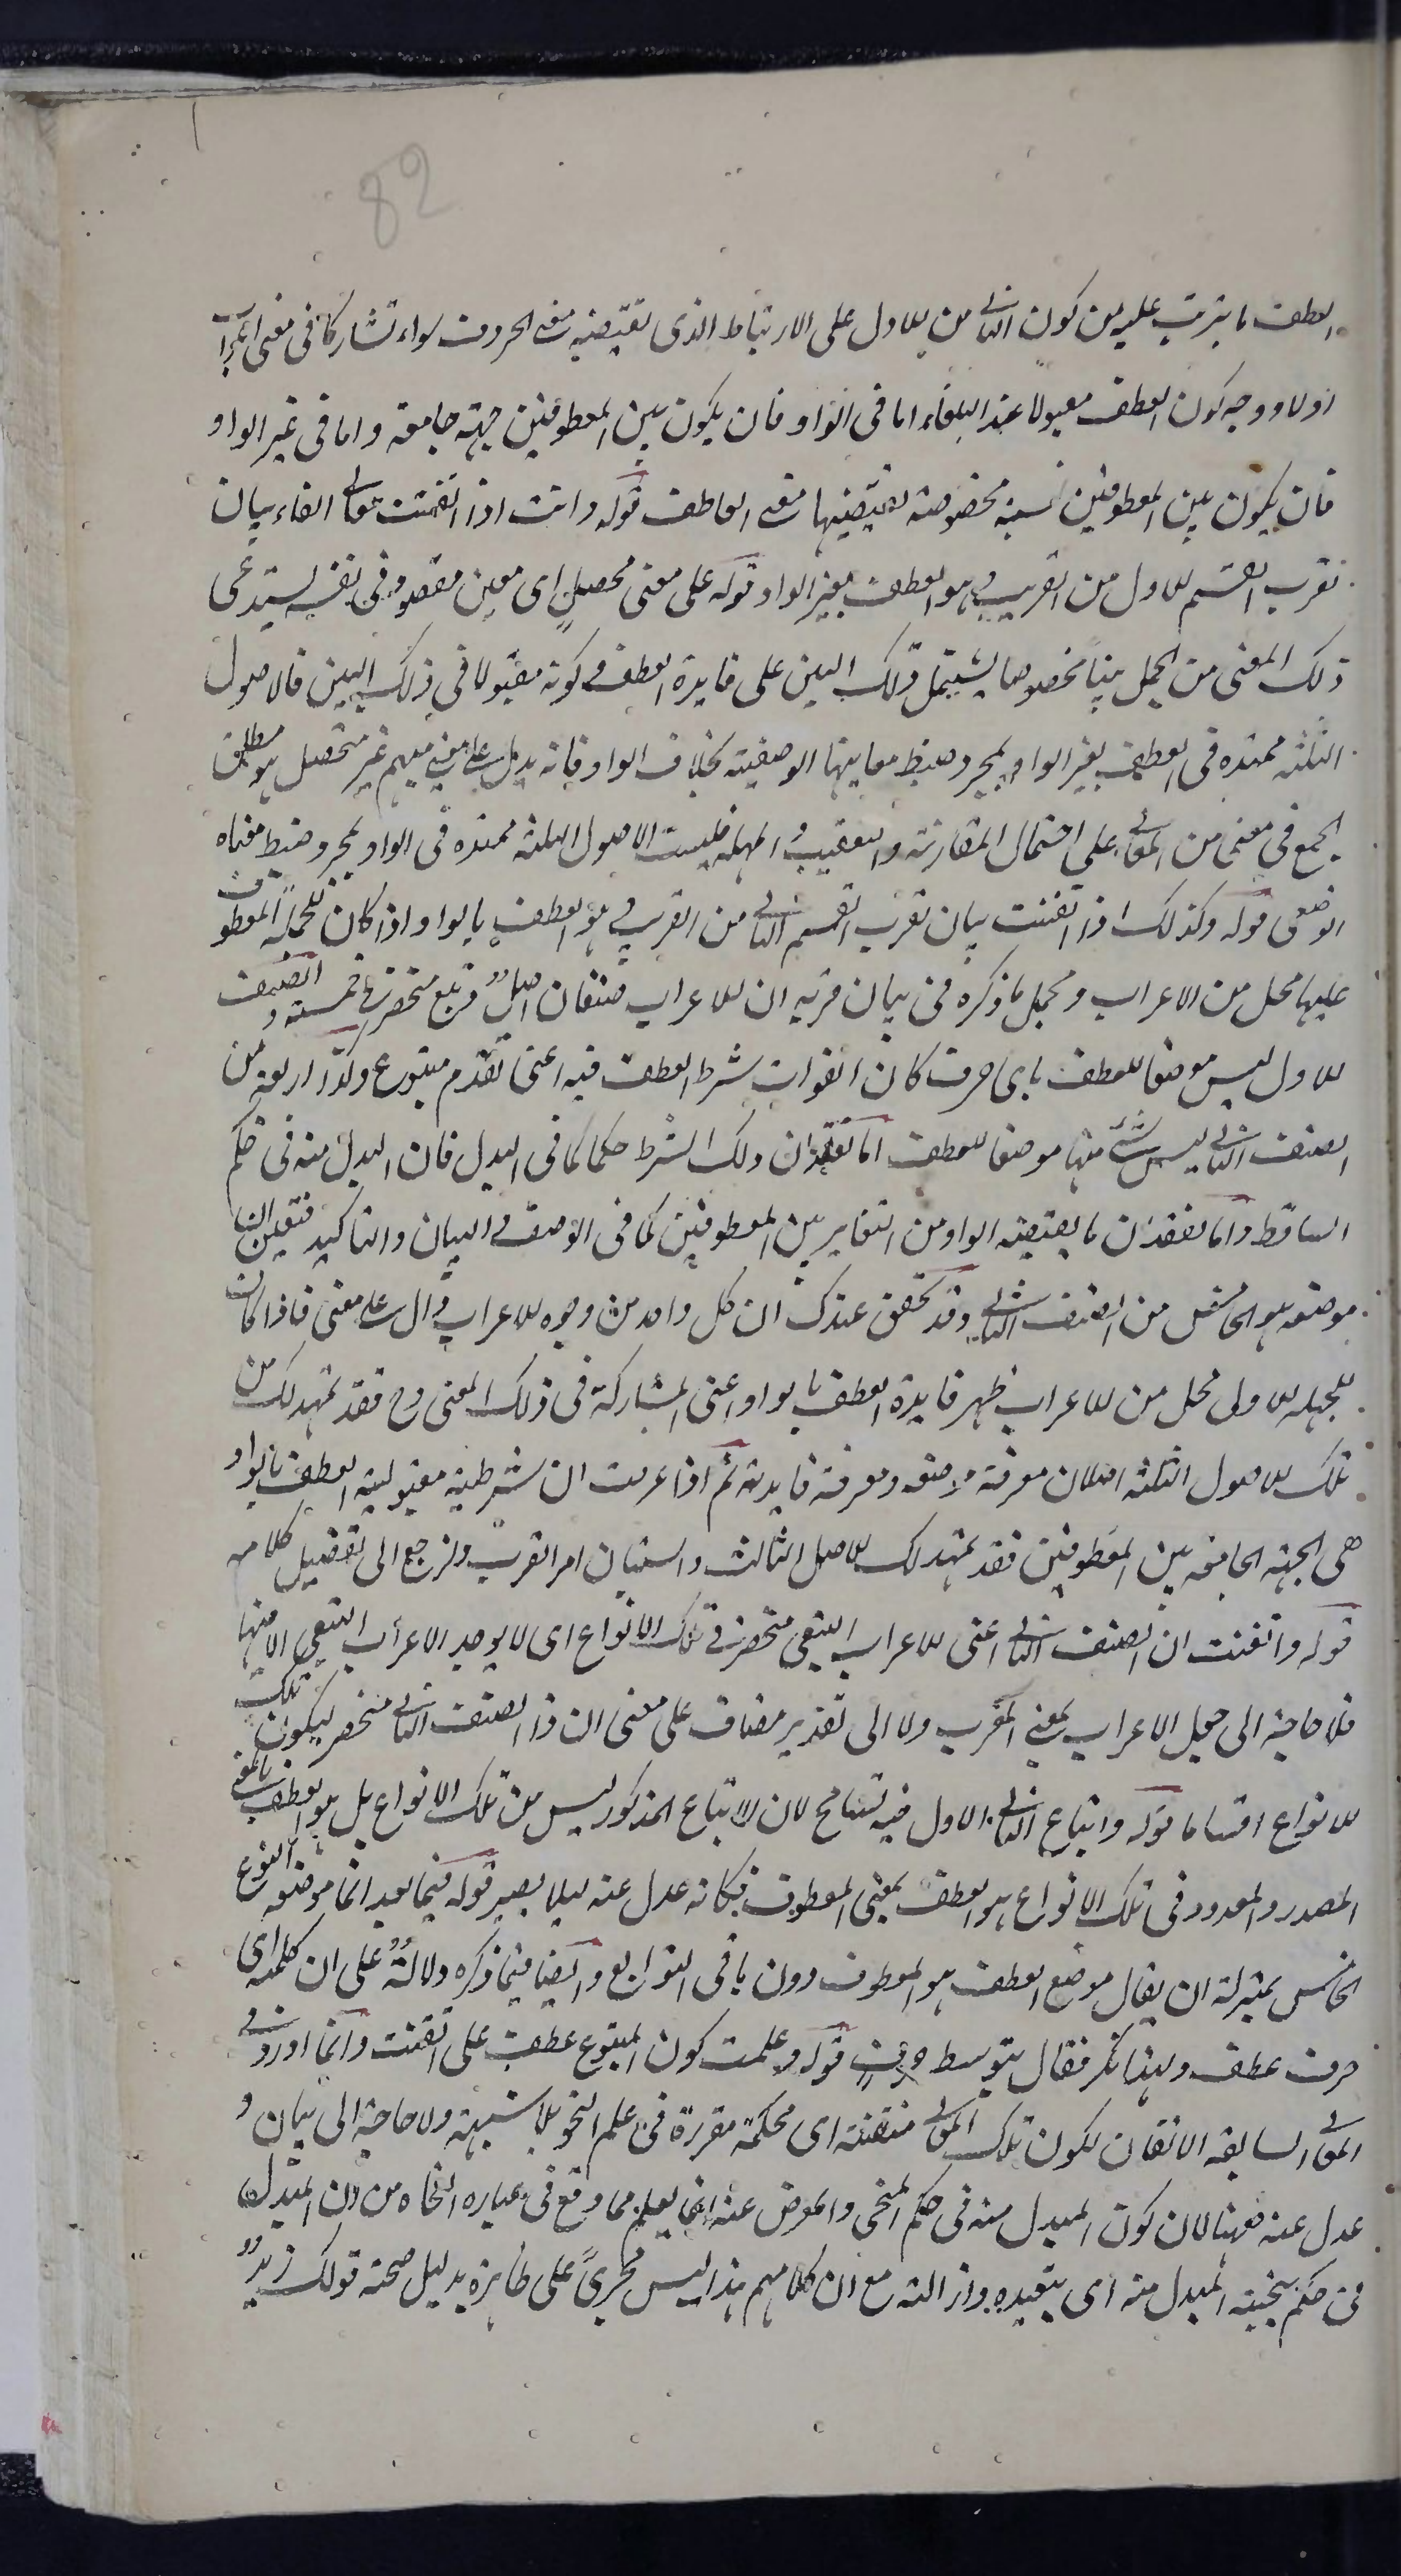 82
العطف ما يترتب عليه من كون الثاني من الاول على الارتباط الذى تقتضيه معنى الحروف سواء تشاركا فى معنى اعراب
اولا ووجه كون العطف مقبولا عند البلغاء اما فى الواو فان يكون بين المعطوفين جهة جامعة واما فى غير الواو
فان يكون بين المعطوفين نسبة مخصوصة تقتضيها معنى العاطف قوله وانت اذا اتقنت معانى الفاء بيان
تقرب القسم الاول من القريب وهو العطف بغير الواو قوله على معنى محصل اى معين مقصود فى نفسه يستدعى
ذلك المعنى من الجمل بينا مخصوصا يشتمل ذلك البين على فايدة العطف وكونه مقبولا فى ذلك البين فالاصول
الثلثة ممتده فى العطف بغير الواو بمجرد ضبط معانيها الوضعية بخلاف الواو فانه يدل على معنى مبهم غير متحصل هو مطلق
الجمع فى معنى من المعانى على احتمال المقارنة والتعقيب والمهلة فليست الاصول الثلثة ممتده فى الواو بمجرد ضبط معناه
الوضعى قوله وكذلك اذا اتقنت بيان تقرب القسم الثانى من القريب وهو العطف بالواو اذا كان للجملة المعطوف
عليها محل من الاعراب ومجمل ما ذكره فى بيان قربه ان للاعراب صنفان اصل وتبع منحصر فى خمسة والصنف
الاول ليس موضعا للعطف باى حرف كان لفوات شرط العطف فيه اعنى تقدم متبوع وكذا اربعة من
الصنف الثانى ليس شئ منها موضعا للعطف اما لفقدان ذلك الشرط حكما كما فى البدل فان المبدل منه فى حكم
الساقط واما لفقدان ما يقتضيه الواو من التغاير بين المعطوفين كما فى الوصف والبيان والتاكيد فتعين ان
موضعه هو الخامس من الصنف الثانى وقد تحقق عندك ان كل واحد من وجوه الاعراب دال على معنى فاذا كان
للجملة الاولى محل من الاعراب ظهر فايدة العطف بالواو اعنى المشاركة فى ذلك المعنى وح فقد تمهد لك من
تلك الاصول الثلثة اصلان معرفة موضعه ومعرفة فايدته ثم اذا عرفت ان شرطية مقبولية العطف بالواو
هى الجهة الجامعة بين المعطوفين فقد تمهد لك الاصل الثالث واستبان امر القرب ولنرجع الى تفصيل كلامه
قوله واتقنت ان الصنف الثانى اعنى الاعراب التبعى منحصر فى تلك الانواع اى لا يوجد الاعراب التبعى الا فيها
فلا حاجة الى جعل الاعراب بمعنى المعرب ولا الى تقدير مضاف على معنى ان ذا الصنف الثانى منحصر ليكون تلك
الانواع اقساما قوله واتباع الثانى الاول فيه تسامح لان الاتباع المذكور ليس من تلك الانواع بل هو العطف بالمعنى
المصدر والمعدود فى تلك الانواع هو العطف بمعنى المعطوف فكانه عدل عنه ليلا يصير قوله فيما بعد انما موضعه النوع
الخامس بمنزلة ان يقال موضع العطف هو المعطوف دون باقى التوابع وايضا فيما ذكره دلالة على ان كلمة اى
حرف عطف ولهذا نكر فقال بتوسط حرف قوله وعلمت كون المتبوع عطف على اتقنت وانما اورد فى
المعانى السابقة الاتقان لكون تلك المعانى متقنة اى محكمة مقررة فى علم النحو بلا شبهة ولا حاجة الى بيان و
عدل عنه ههنا لان كون المبدل منه فى حكم المنحى والمعرض عنه انما يعلم مما وقع فى عبارة النحاة من ان المبدل
فى حكم تنحية المبدل منه اى تبعيده وازالته مع ان كلامهم هذا ليس مجرىً على ظاهره بدليل صحة قولك زيدٌ